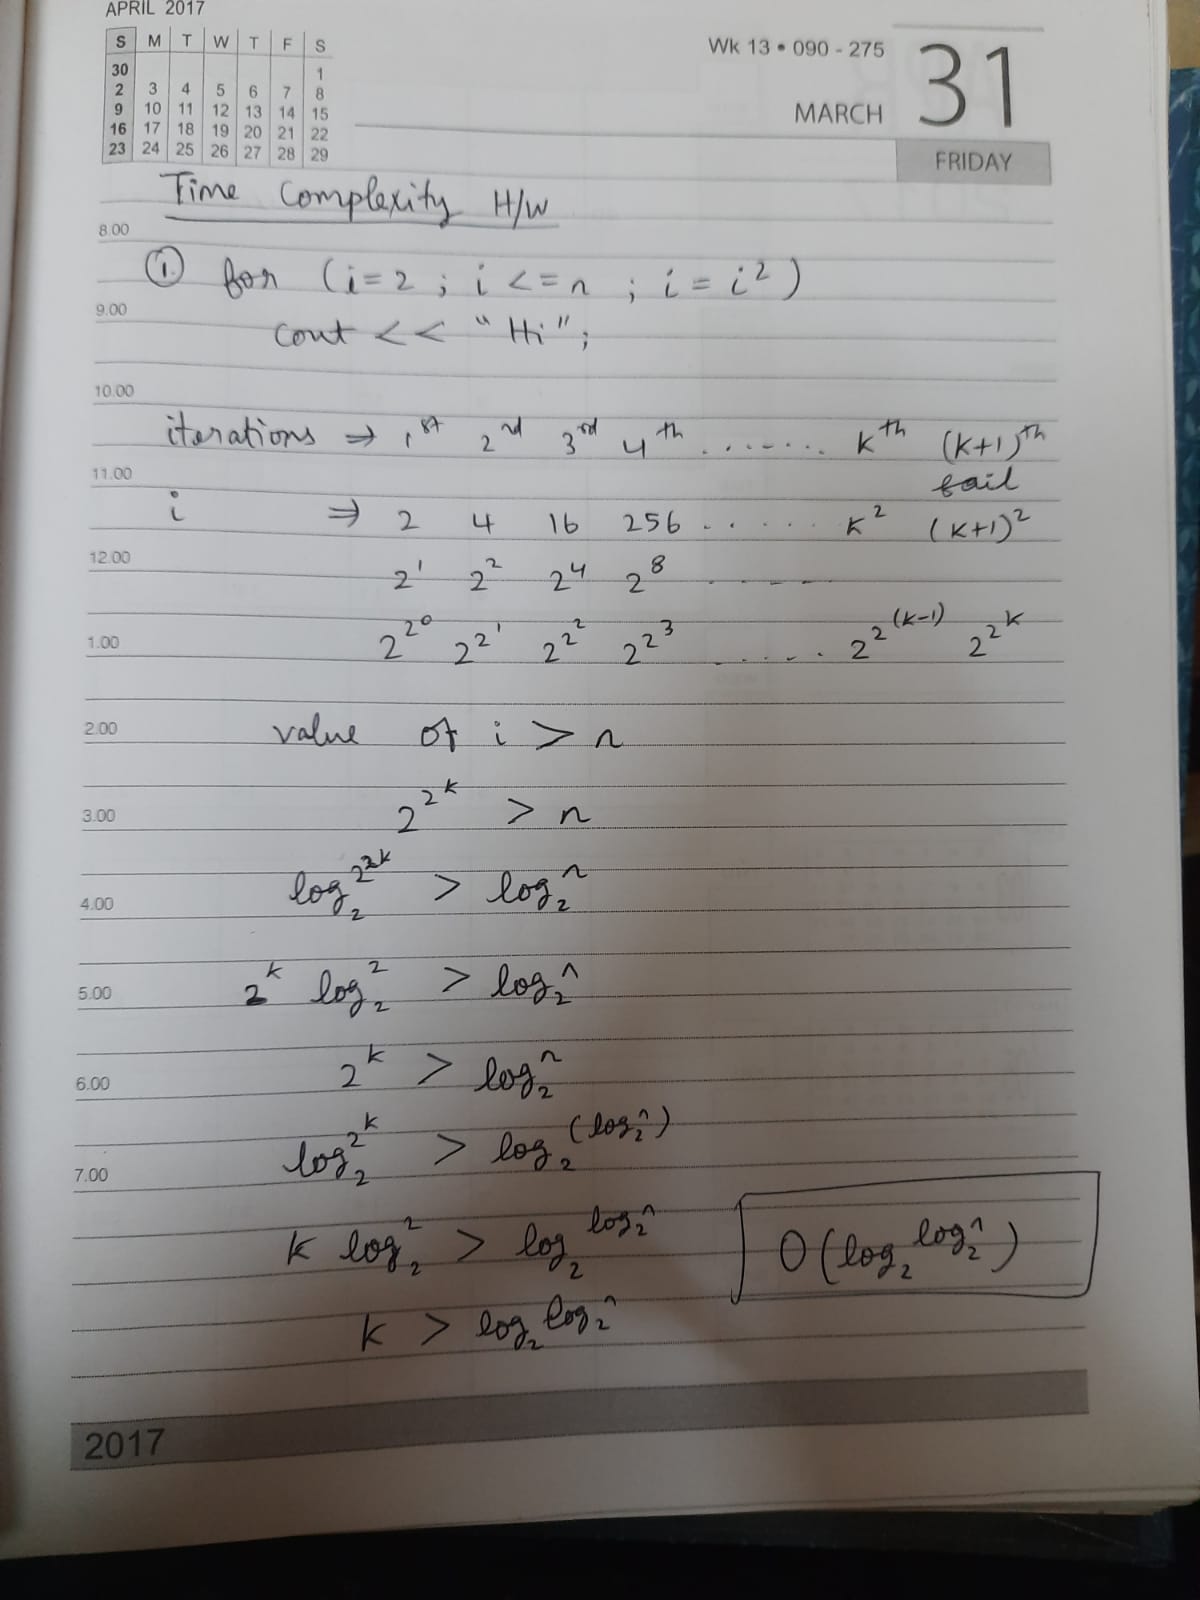 APRIL 2017
S M T W T F S
30 1
2 3 4 5 6 7 8
9 10 11 12 13 14 15
16 17 18 19 20 21 22
23 24 25 26 27 28 29
Wk 13 • 090 - 275
MARCH 31
FRIDAY
Time Complexity H/W
8.00
① for (i=2 ; i <= n ; i = i²)
9.00
cout << "Hi";
10.00
iterations ⇒ 1st 2nd 3rd 4th ...... kth (k+1)th
11.00
fail
i ⇒ 2 4 16 256 ..... k² (k+1)²
12.00
2¹ 2² 2⁴ 2⁸ ....
1.00
2^2^0 2^2^1 2^2^2 2^2^3 ..... 2^2^(k-1) 2^2^k
2.00
value of i > n
3.00
2^2^k > n
4.00
log₂ 2^2^k > log₂ n
5.00
2^k log₂ 2 > log₂ n
6.00
2^k > log₂ n
7.00
log₂ 2^k > log₂ (log₂ n)
k log₂ 2 > log₂ log₂ n
O(log₂ log₂ n)
k > log₂ log₂ n
2017